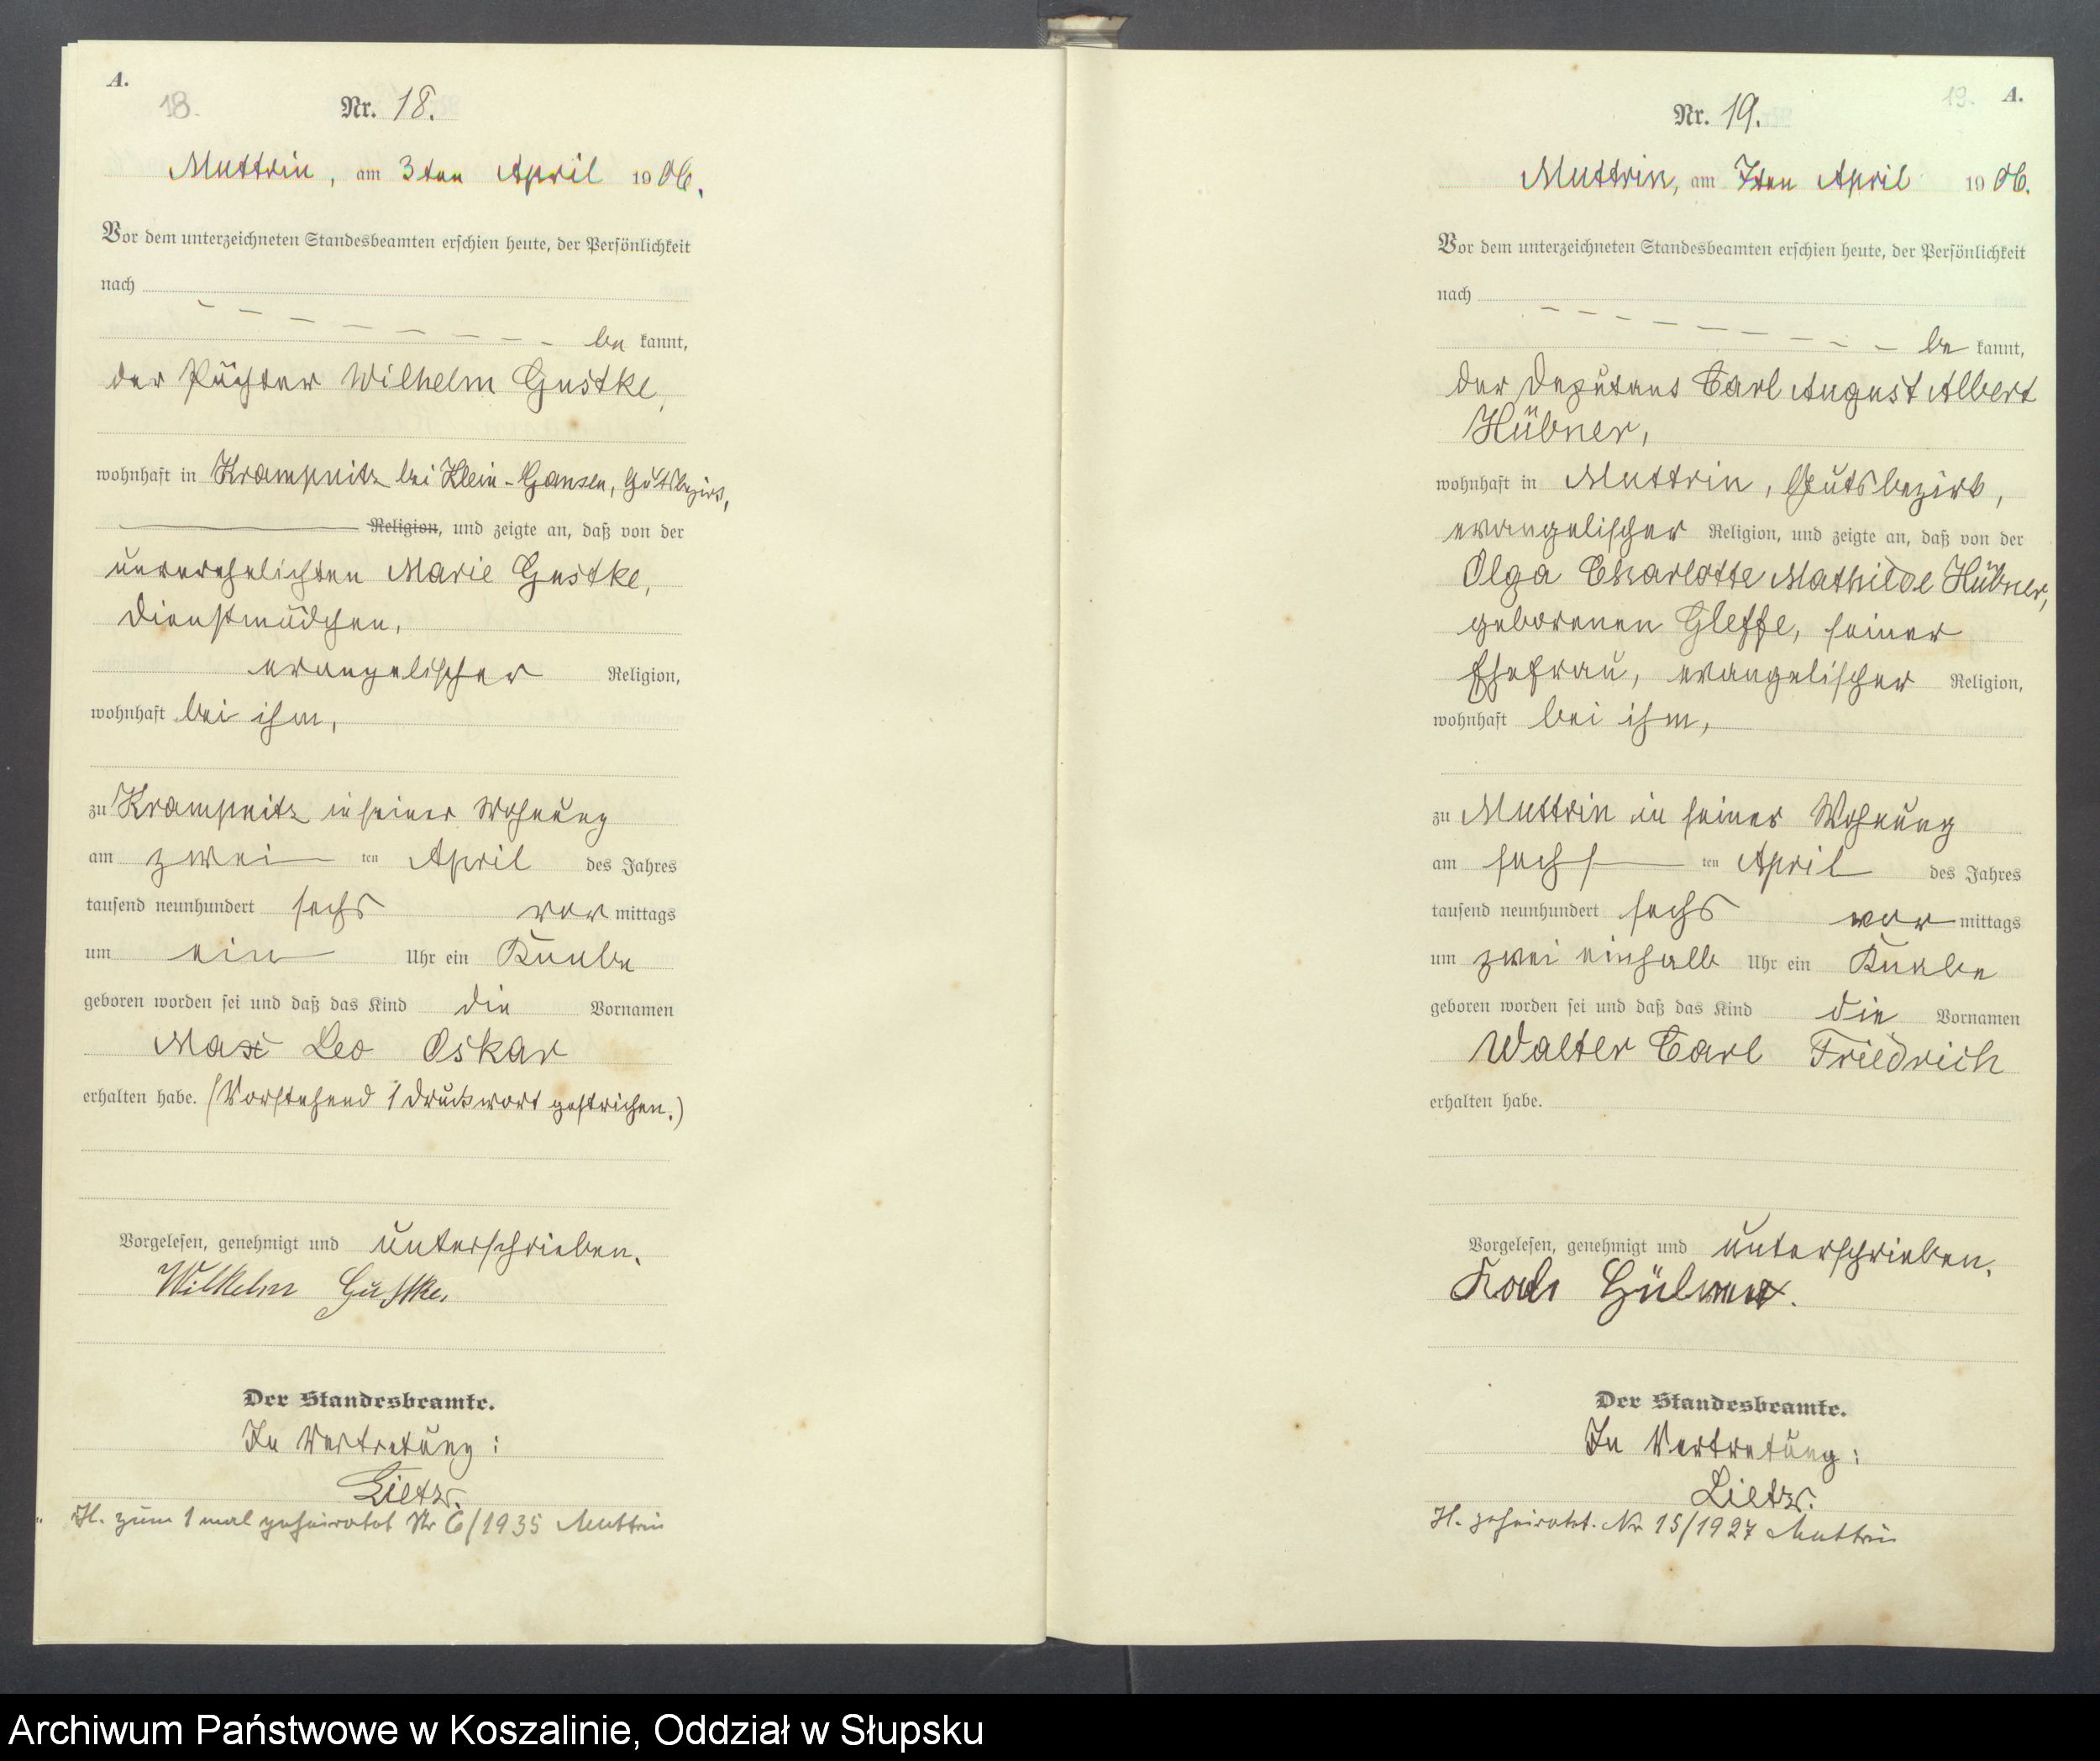 A.
18.
Nr. 18.
Muttrin, am 3ten April 1906.
Vor dem unterzeichneten Standesbeamten erschien heute, der Persönlichkeit
nach
be kannt,
der Pächter Wilhelm Gustke,
wohnhaft in Krampnitz bei Klein-Gansen, Gutsbezirk,
Religion, und zeigte an, daß von der
unverehelichten Marie Gustke,
Dienstmädchen,
evangelischer Religion,
wohnhaft bei ihm,
zu Krampnitz in seiner Wohnung
am zwei ten April des Jahres
tausend neunhundert sechs vor mittags
um ein Uhr ein Knabe
geboren worden sei und daß das Kind die Vornamen
Max Leo Oskar
erhalten habe. (Vorstehend 1 Druckwort gestrichen.)
Vorgelesen, genehmigt und unterschrieben.
Wilhelm Gustke.
Der Standesbeamte.
In Vertretung:
Lietz.
H. zum 1 mal geheiratet Nr 6/1935 Muttrin
19. A.
Nr. 19.
Muttrin, am 7ten April 1906.
Vor dem unterzeichneten Standesbeamten erschien heute, der Persönlichkeit
nach
be kannt,
der Deputant Carl August Albert
Hübner,
wohnhaft in Muttrin, Gutsbezirk,
evangelischer Religion, und zeigte an, daß von der
Olga Charlotte Mathilde Hübner,
geborenen Gleffe, seiner
Ehefrau, evangelischer Religion,
wohnhaft bei ihm,
zu Muttrin in seiner Wohnung
am sechs ten April des Jahres
tausend neunhundert sechs vor mittags
um zwei einhalb Uhr ein Knabe
geboren worden sei und daß das Kind die Vornamen
Walter Carl Friedrich
erhalten habe.
Vorgelesen, genehmigt und unterschrieben.
Karl Hübner.
Der Standesbeamte.
In Vertretung:
Lietz.
H. geheiratet. Nr 15/1927 Muttrin
Archiwum Państwowe w Koszalinie, Oddział w Słupsku